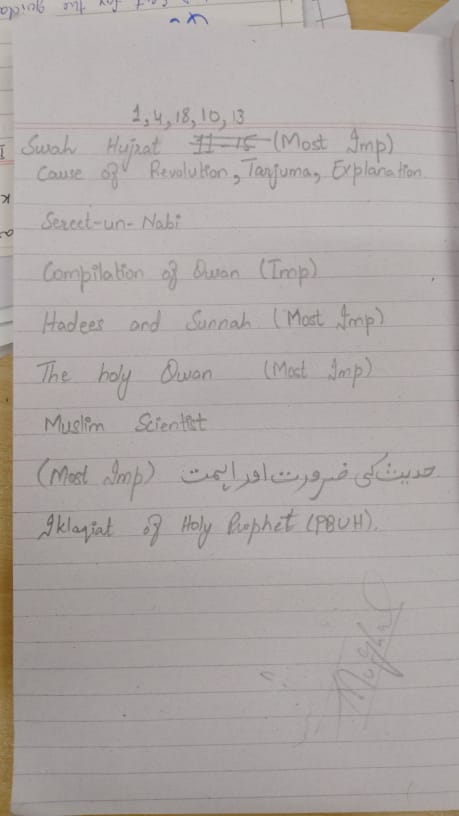 1, 4, 18, 10, 13
Surah Hujrat 11-15 (Most Imp)
Cause of Revolution, Tarjuma, Explanation.
Sereet-un-Nabi
Compilation of Quran (Imp)
Hadees and Sunnah (Most Imp)
The holy Quran (Most Imp)
Muslim Scientist
(Most Imp) حدیث کی ضرورت اور اہمیت
Iklaqiat of Holy Prophet (PBUH).
Mughal